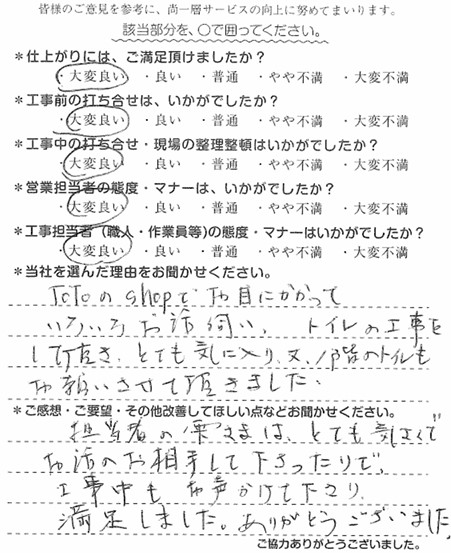 皆様のご意見を参考に、尚一層サービスの向上に努めてまいります。
該当部分を、○で囲ってください。
＊仕上がりには、ご満足頂けましたか？
・大変良い ・良い ・普通 ・やや不満 ・大変不満
＊工事前の打ち合せは、いかがでしたか？
・大変良い ・良い ・普通 ・やや不満 ・大変不満
＊工事中の打ち合せ・現場の整理整頓はいかがでしたか？
・大変良い ・良い ・普通 ・やや不満 ・大変不満
＊営業担当者の態度・マナーは、いかがでしたか？
・大変良い ・良い ・普通 ・やや不満 ・大変不満
＊工事担当者（職人・作業員等）の態度・マナーはいかがでしたか？
・大変良い ・良い ・普通 ・やや不満 ・大変不満
＊当社を選んだ理由をお聞かせください。
TOTOのshopでお目にかかって
いろいろお話伺い、トイレの工事を
して頂き、とても気に入り、又、1階のトイレも
お願いさせて頂きました。
＊ご感想・ご要望・その他改善してほしい点などお聞かせください。
担当者の さまは、とても気さくで
お話のお相手して下さったりで、
工事中もお声かけて下さり、
満足しました。ありがとうございました
ご協力ありがとうございました。